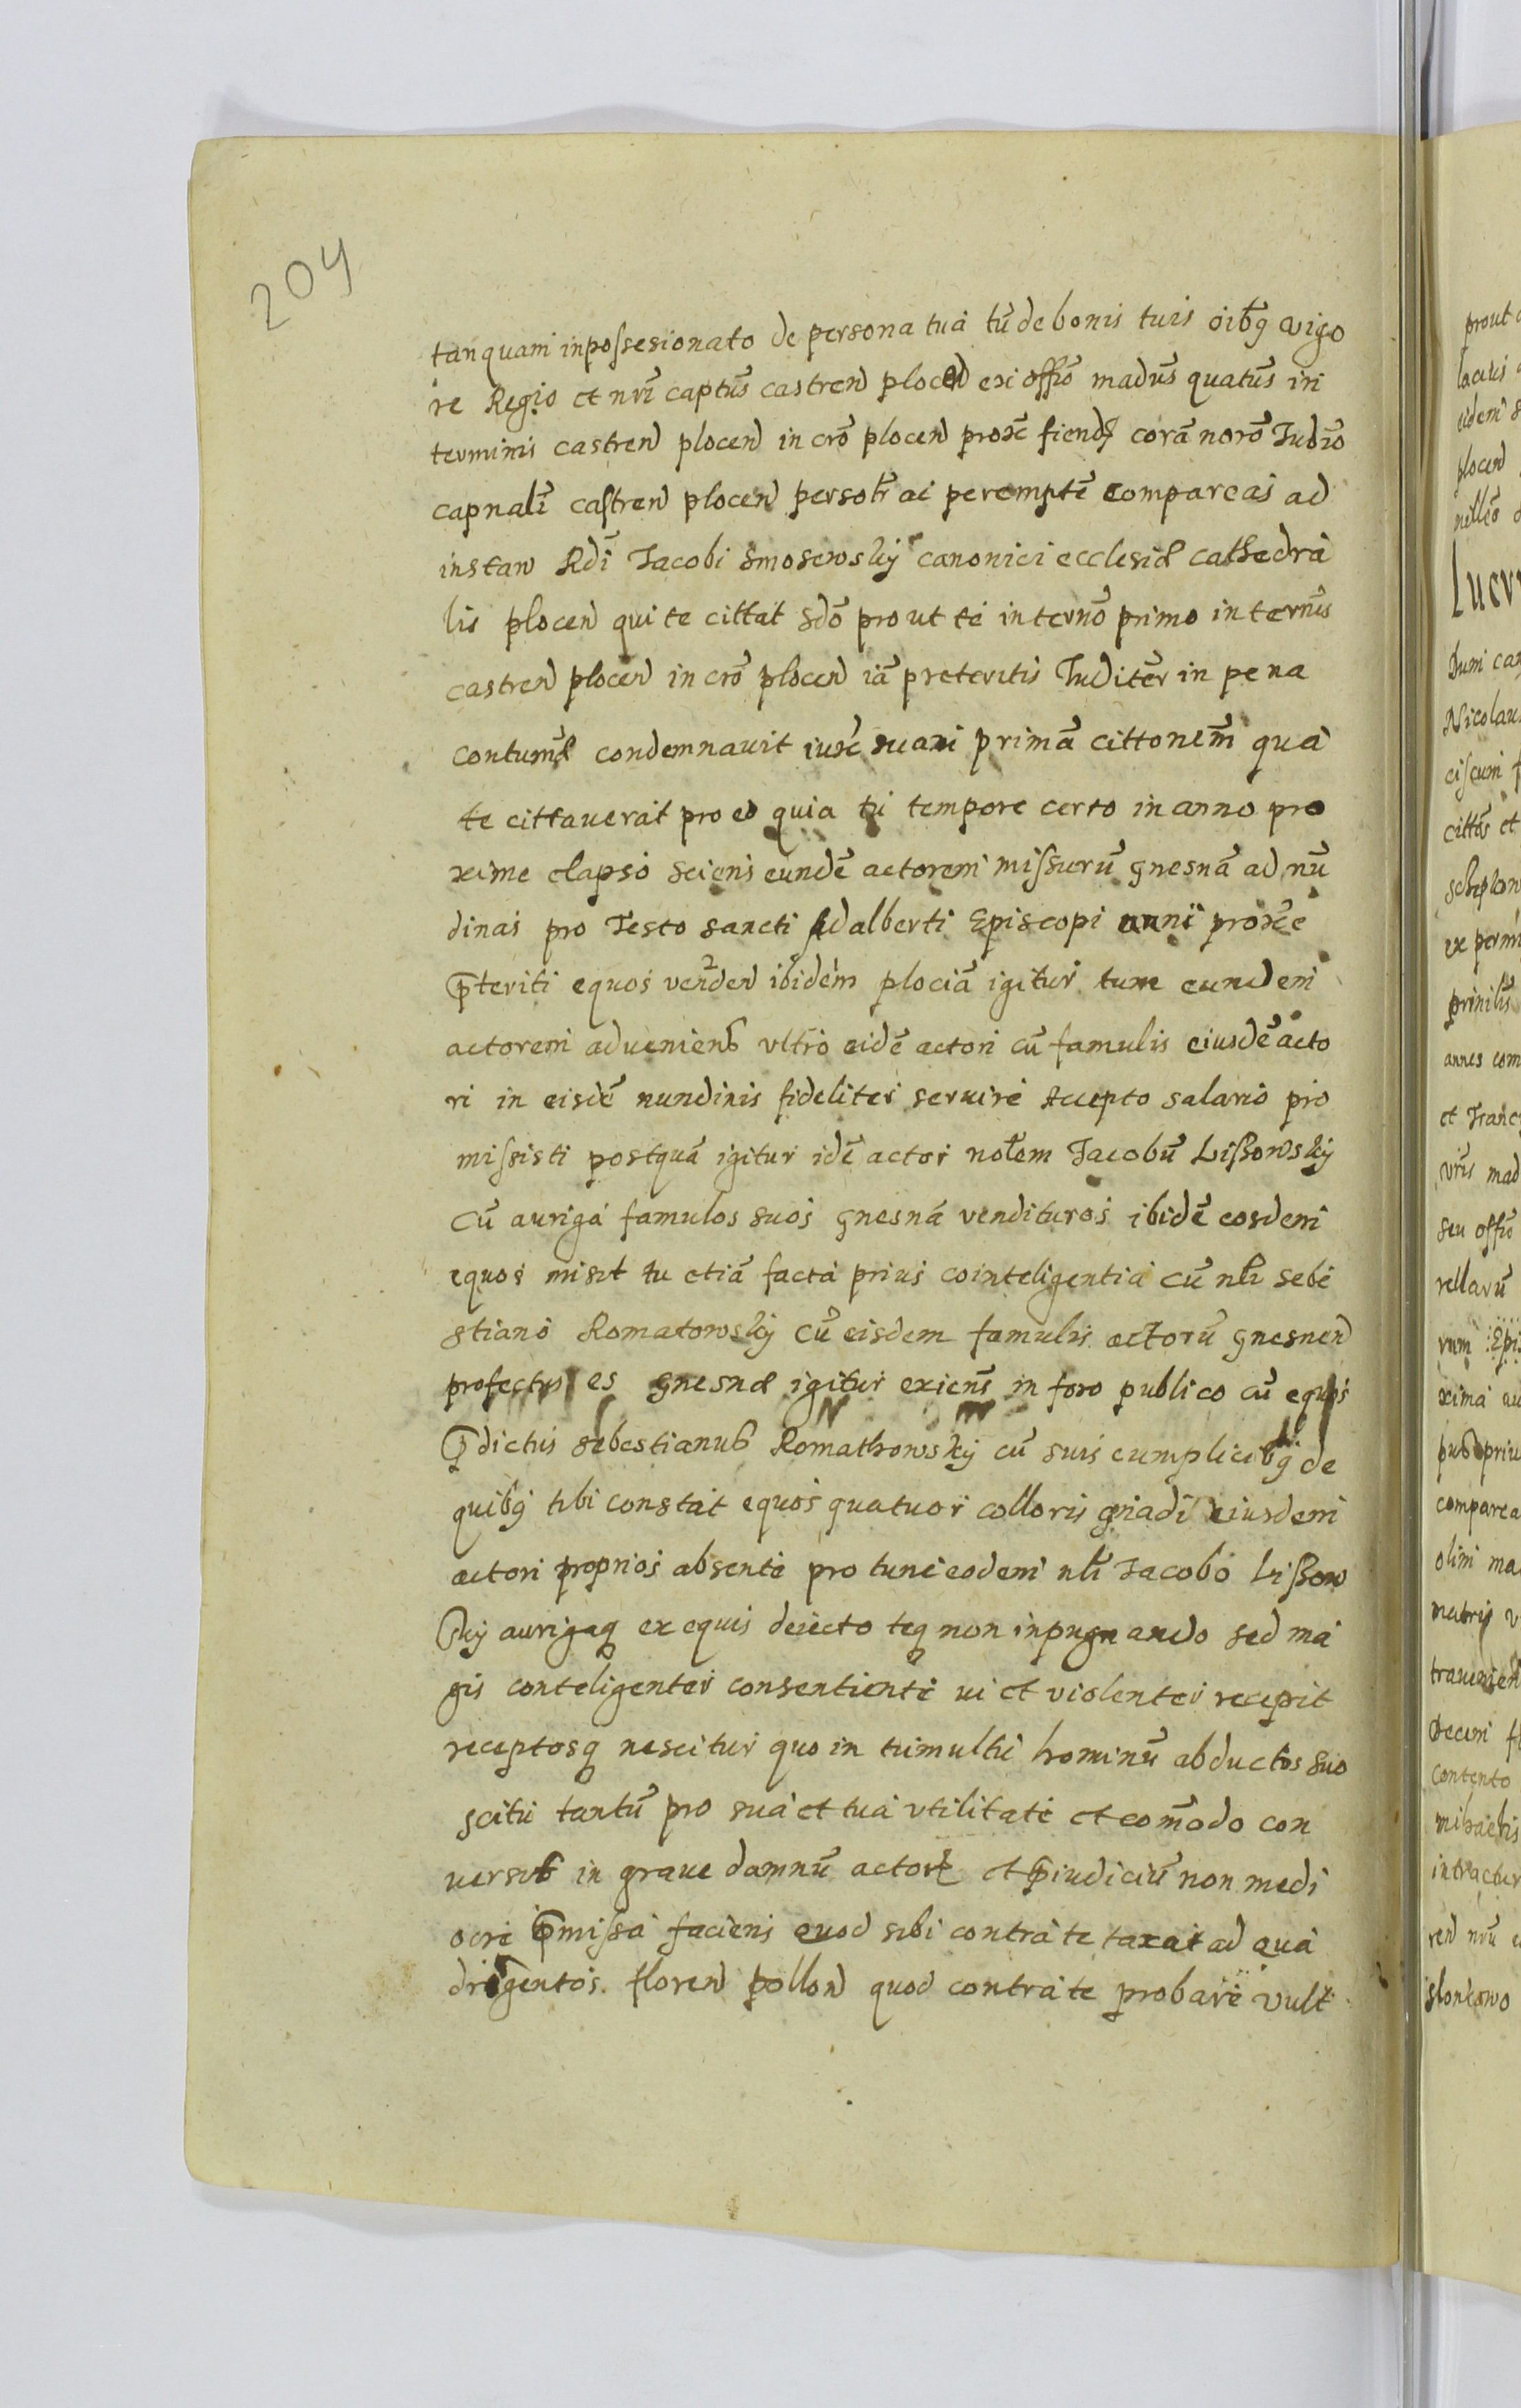 204
tanquam inpossesionato de persona tua tū de bonis tuis oibq vigo
re Regio et nrī captūs castren plocen exi offiō madūs quatūs in
terminis castren plocen in crō plocen proxē fiend corā norō Iudiō
capnalī castren plocen persolr ac peremptē compareas ad
instan Rdī Iacobi Smosewsky canonici ecclesiæ cathedra
lis plocen qui te cittat sdō prout te in ternō primo in ternīs
castren plocen in crō plocen iā preteritis Iuditēr in pena
contumā condemnavit iuxē suam primā cittonēm qua
te cittaverat pro eo quia tu tempore certo in anno pro
xime elapso sciens eundē actorem missurū gnesnā ad nū
dinas pro Festo sancti Adalberti Episcopi anni proxē
pteriti equos venden ibidem plociā igitur tunc eundem
actorem adveniens vltro eidē actori cū famulis eiusdē acto
ri in eisdē nundinis fideliter servire Accepto salario pro
missisti postquā igitur idē actor nolem Iacobū Lissowsky
cū auriga famulos suos gnesnā vendituros ibidē eosdem
equos misit tu etiā facta prius cointeligentia cū nlī sebe
stiano Romatowsky cū eisdem famulis actorū gnesnen
profectus es gnesnæ igitur exiens in foro publico cū equis
pdictus sebestianus Romathowsky cū suis cumplicibq de
quibq tibi constat equos quatuor colloris gniadi eiusdem
actori proprios absente pro tunc eodem nlī Iacobo Lissow
sky aurigaq ex equis deiecto teq non inpugnando sed ma
gis conteligenter consentiente vi et violenter recepit
receptosq nescitur quo in tumultu hominū abductos suo
scitu tantū pro sua et tua vtilitate et comodo con
versus in grave damnū actoris et piudiciū non medi
ocre pmissa faciens quod sibi contra te taxat ad qua
dringentos floren pollon quod contra te probare vult
prout
plocen
Nicolau
cittās et
annes com
et Franc
seu offiō
rellarū
xima
compare
olim ma
contento
slonkowo